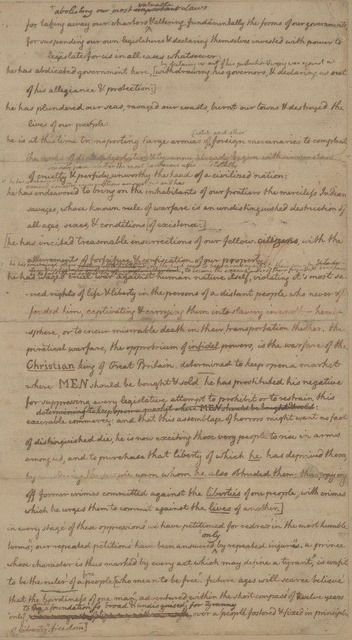 abolishing our most valuable laws
for taking away our charters & altering fundamentally the forms of our governments
for suspending our own legislatures & declaring themselves invested with power to
legislate for us in all cases whatsoever.
he has abdicated government here, withdrawing his governors, & declaring us out
of his allegiance & protection:
he has plundered our seas, ravaged our coasts, burnt our towns & destroyed the
lives of our people:
he is at this time transporting large armies of foreign mercenaries to compleat
the works of death desolation & tyranny already begun with circumstances
of cruelty & perfidy unworthy the head of a civilized nation:
he has endeavored to bring on the inhabitants of our frontiers the merciless Indian
savages, whose known rule of warfare is an undistinguished destruction of
all ages, sexes, & conditions of existence:
[he has incited treasonable insurrections of our fellow citizens, with the
allurements of forfeiture & confiscation of our property:
he has waged cruel war against human nature itself, violating it's most sa-
-cred rights of life & liberty in the persons of a distant people who never of-
fended him, captivating & carrying them into slavery in another hemi-
sphere, or to incur miserable death in their transportation thither. this
piratical warfare, the opprobrium of infidel powers, is the warfare of the
Christian king of Great Britain. determined to keep open a market
where MEN should be bought & sold he has prostituted his negative
for suppressing every legislative attempt to prohibit or to restrain this
determining to keep open a market where MEN should be bought & sold:
execrable commerce: and that this assemblage of horrors might want no fact
of distinguished die, he is now exciting those very people to rise in arms
among us, and to purchase that liberty of which he has deprived them,
by murdering the people upon whom he also obtruded them: thus paying
off former crimes committed against the liberties of one people, with crimes
which he urges them to commit against the lives of another.]
in every stage of these oppressions we have petitioned for redress in the most humble
only
terms; our repeated petitions have been answered by repeated injuries. a prince
whose character is thus marked by every act which may define a tyrant, is unfit
to be the ruler of a people who mean to be free. future ages will scarce believe
that the hardiness of one man, adventured within the short compass of twelve years
to lay a foundation so broad & undisguised, for tyranny
only over a people fostered & fixed in principles
of liberty freedom.